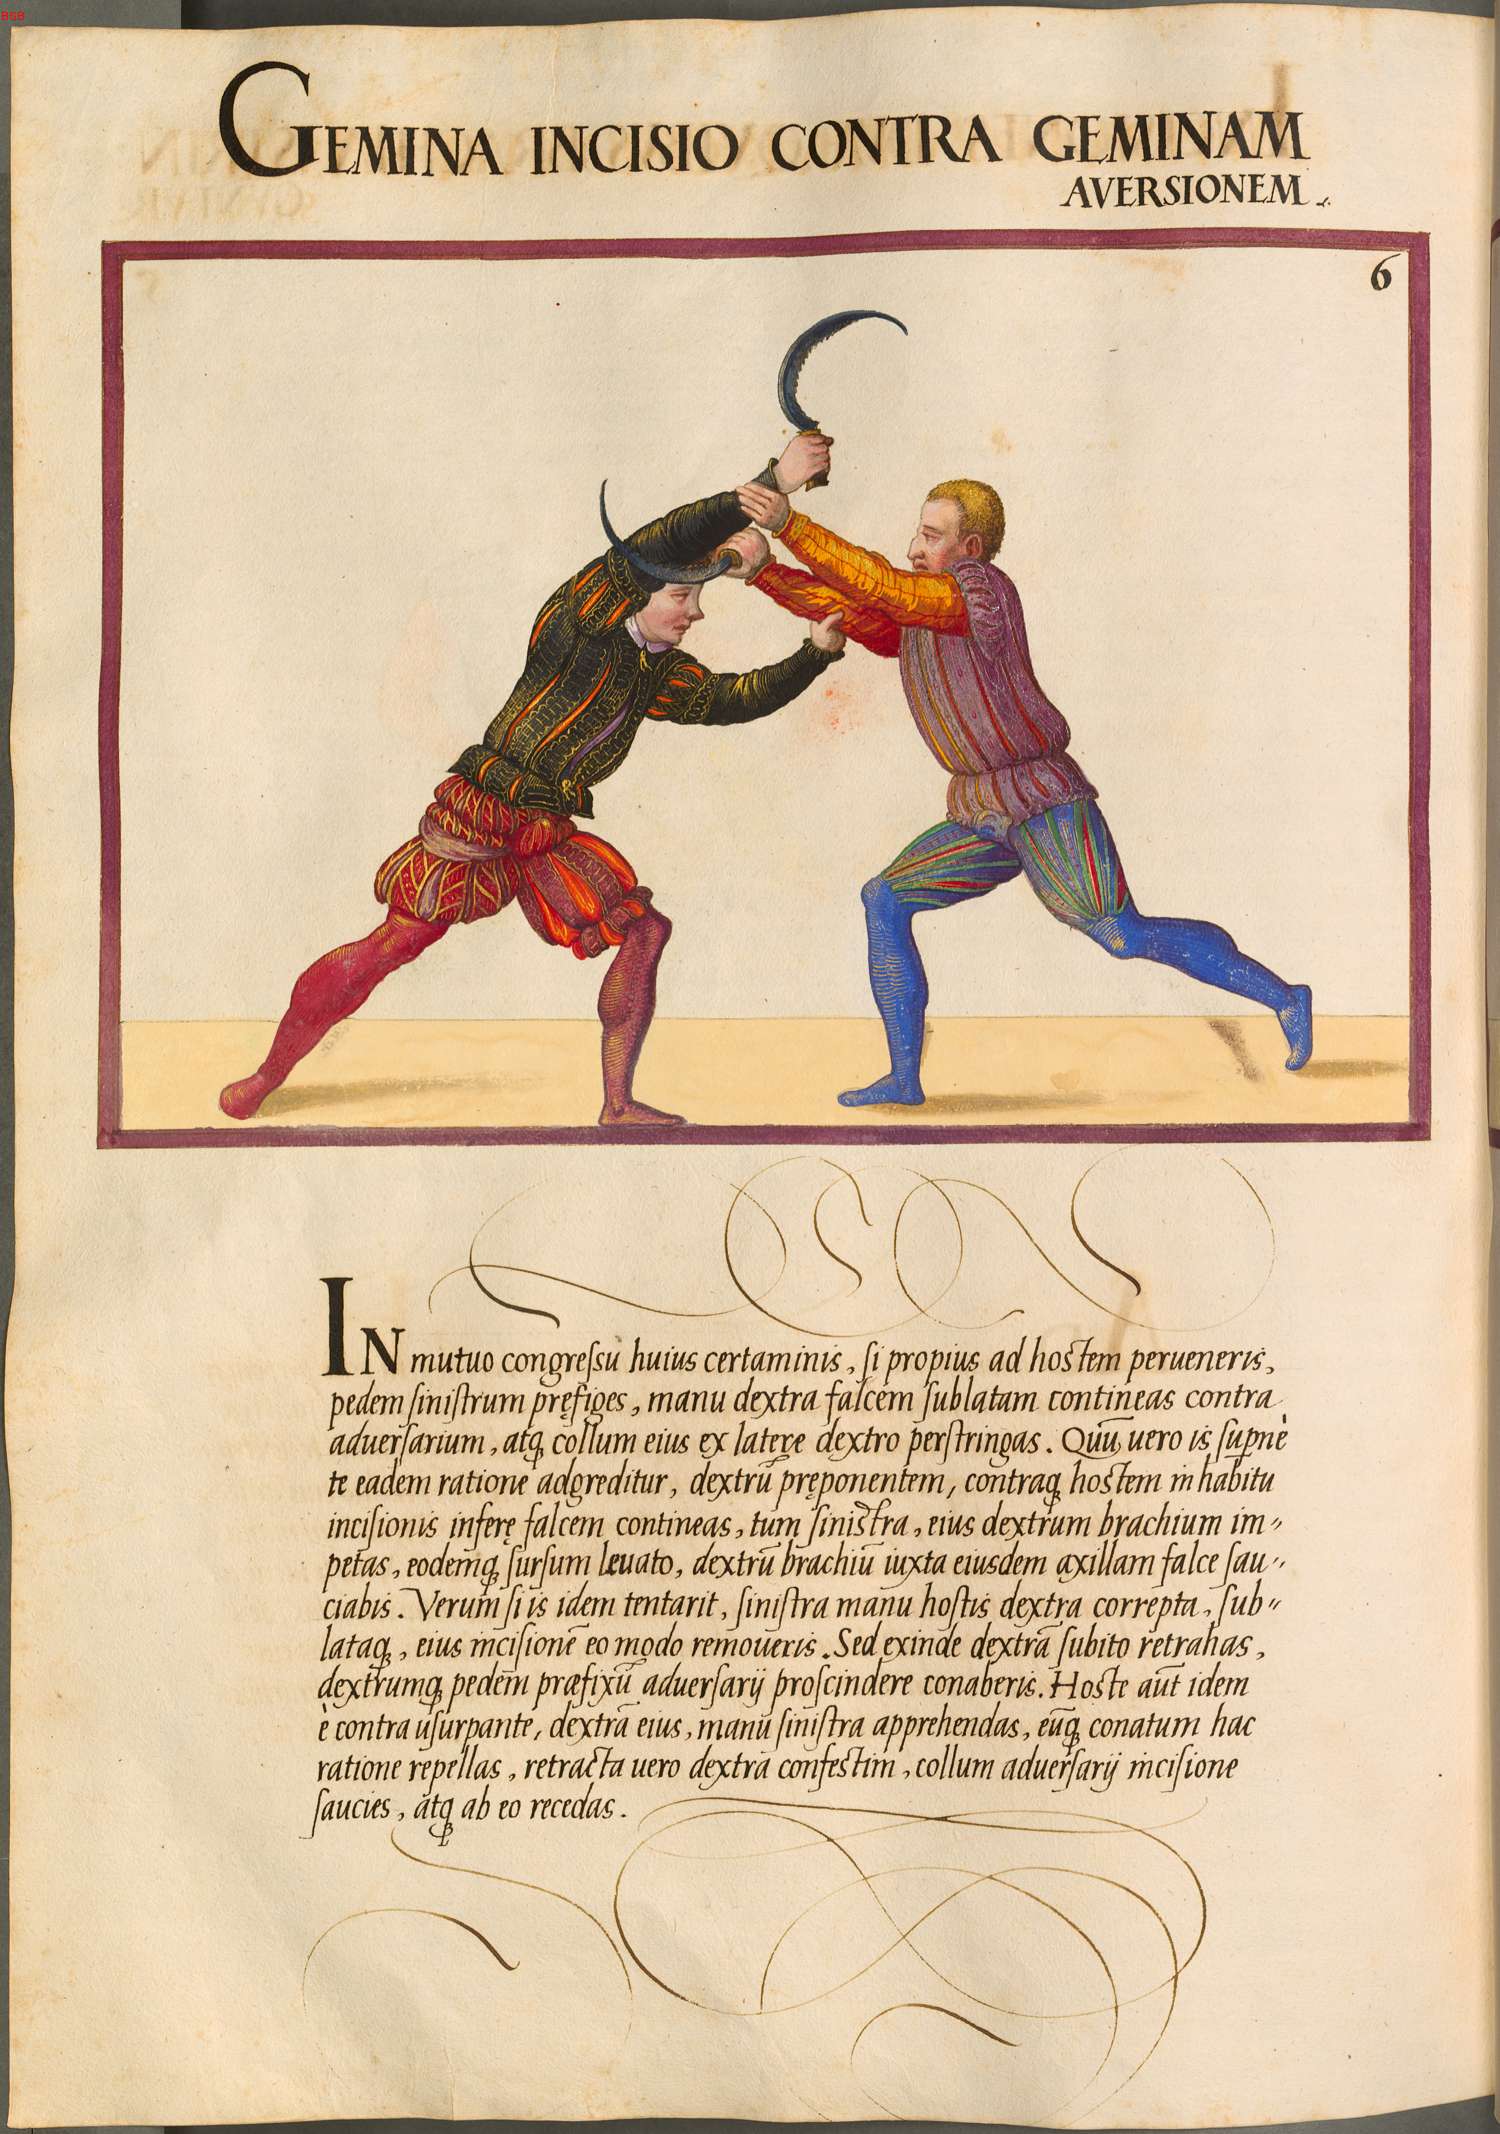 BSB
GEMINA INCISIO CONTRA GEMINAM
AVERSIONEM.
6
IN mutuo congreſsu huius certaminis, ſi propius ad hostem perueneris,
pedem siniſtrum pręfiges, manu dextra falcem ſublatam contineas contra
aduerſarium, atq̃ collum eius ex latere dextro perſtringas. Quũ uero is ſuperne
te eadem ratione adgreditur, dextrũ pręponentem, contraq̃ hostem in habitu
inciſionis inferę falcem contineas, tum ſinistra, eius dextrum brachium im=
petas, eodemq̃ ſurſum leuato, dextrũ brachiũ iuxta eiusdem axillam falce ſau=
ciabis. Verum ſi is idem tentarit, ſiniſtra manu hoſtis dextra correpta, ſub=
lataq̃, eius inciſionẽ eo modo remoueris. Sed exinde dextrã ſubito retrahas,
dextrumq̃ pedem præfixũ aduerſarij proſcindere conaberis. Hoste aũt idem
è contra uſurpante, dextrã eius, manu ſiniſtra apprehendas, eũq̃ conatum hac
ratione repellas, retracta uero dextra confestim, collum aduerſarij inciſione
ſaucies, atq̃ ab eo recedas.